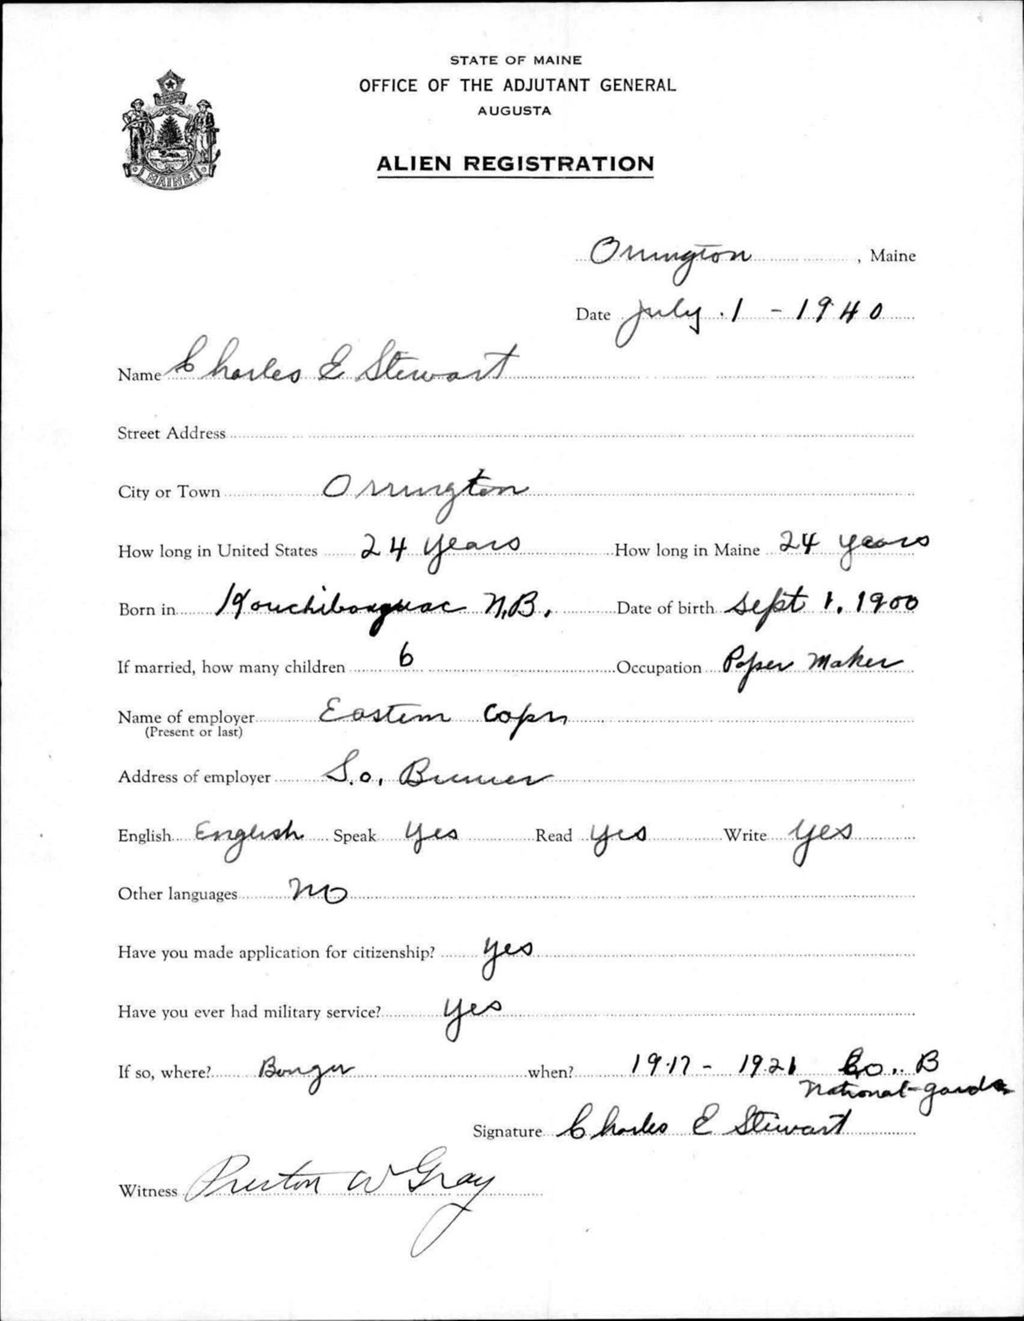 STATE OF MAINE
OFFICE OF THE ADJUTANT GENERAL
AUGUSTA
ALIEN REGISTRATION
MAINE
Orrington, Maine
Date July 1 - 1940
Name Charles E Stewart
Street Address
City or Town Orrington
How long in United States 24 years How long in Maine 24 years
Born in Kouchibouguac N.B. Date of birth Sept 1, 1900
If married, how many children 6 Occupation Paper Maker
Name of employer Eastern Copr
(Present or last)
Address of employer So. Brewer
English English Speak Yes Read Yes Write Yes
Other languages No
Have you made application for citizenship? Yes
Have you ever had military service? Yes
If so, where? Bangor when? 1917 - 1921 Co. B
National Guards
Signature Charles E Stewart
Witness Preston W Gray